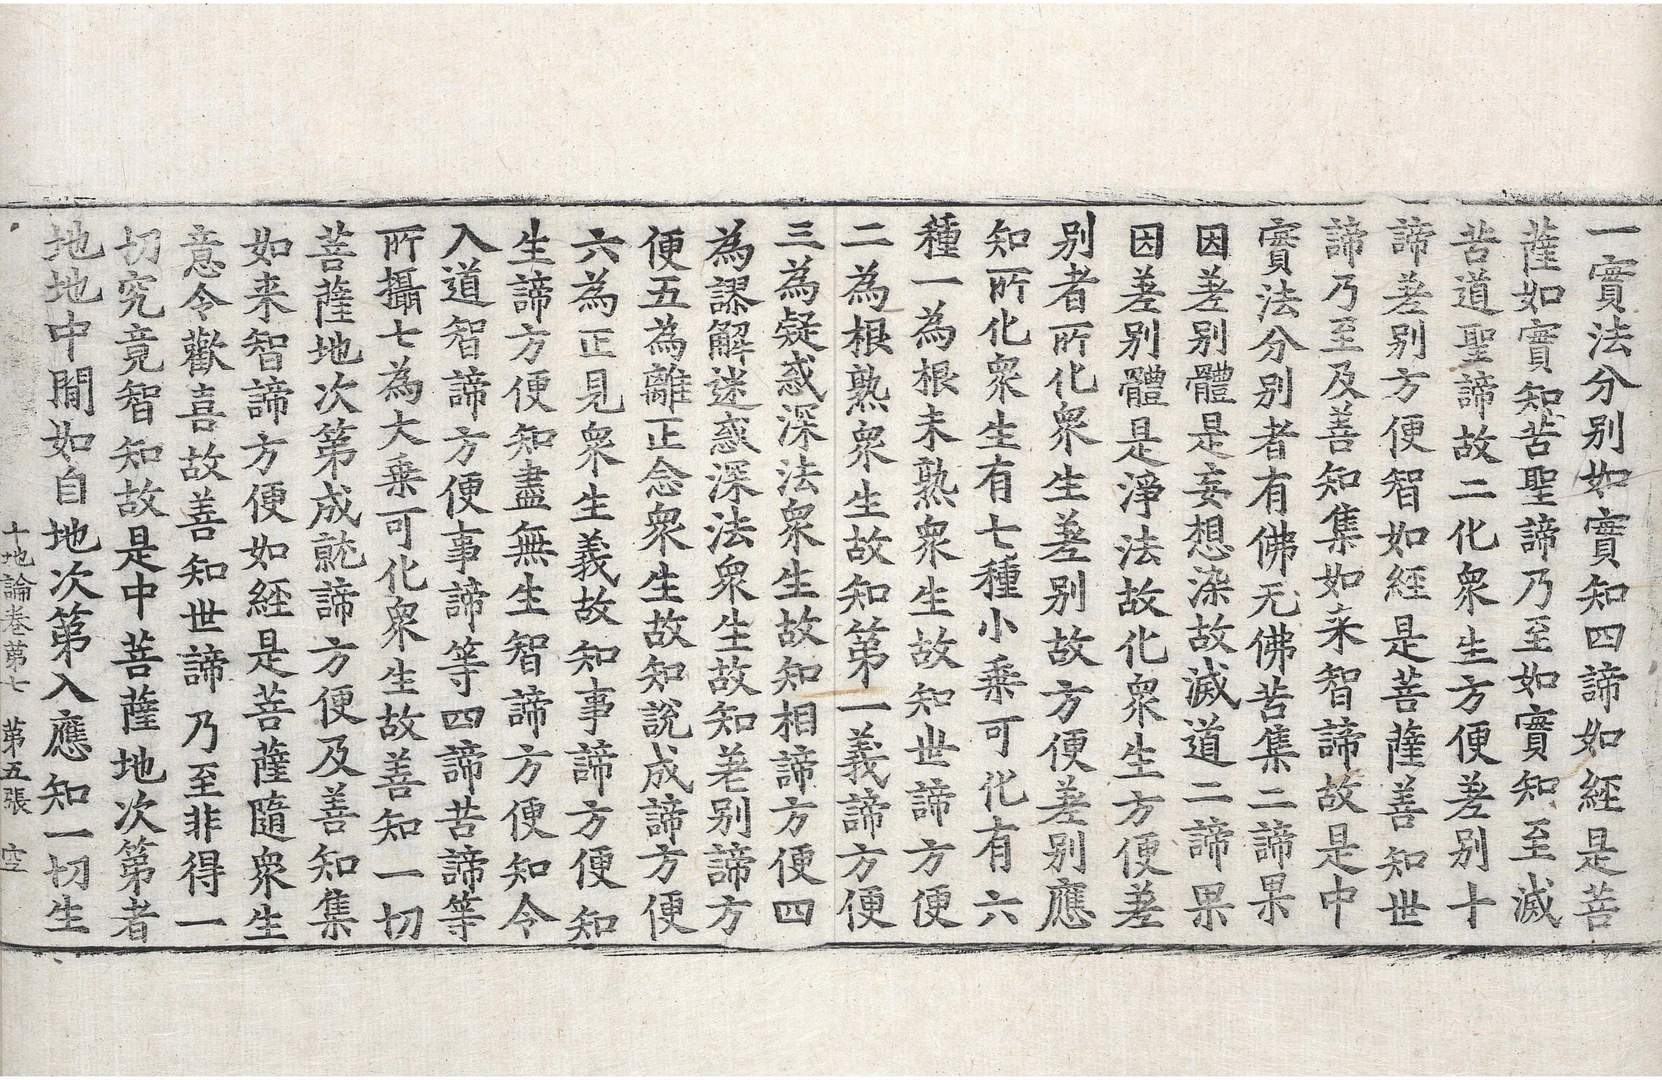 一實法分別如實知四諦如經是菩
薩如實知苦聖諦乃至如實知至滅
苦道聖諦故二化衆生方便差別十
諦差別方便智如經是菩薩善知世
諦乃至及善知集如来智諦故是中
實法分別者有佛无佛苦集二諦果
因差別體是妄想染故滅道二諦果
因差別體是淨法故化衆生方便差
別者所化衆生差別故方便差別應
知所化衆生有七種小乗可化有六
種一為根未熟衆生故知世諦方便
二為根熟衆生故知第一義諦方便
三為疑惑深法衆生故知相諦方便四
為謬解迷惑深法衆生故知差別諦方
便五為離正念衆生故知說成諦方便
六為正見衆生義故知事諦方便知
生諦方便知盡無生智諦方便知令
入道智諦方便事諦等四諦苦諦等
所攝七為大乗可化衆生故善知一切
菩薩地次第成就諦方便及善知集
如来智諦方便如經是菩薩隨衆生
意令歡喜故善知世諦乃至非得一
切究竟智知故是中菩薩地次第者
地地中間如自地次第入應知一切生
十地論卷第七 第五張 空